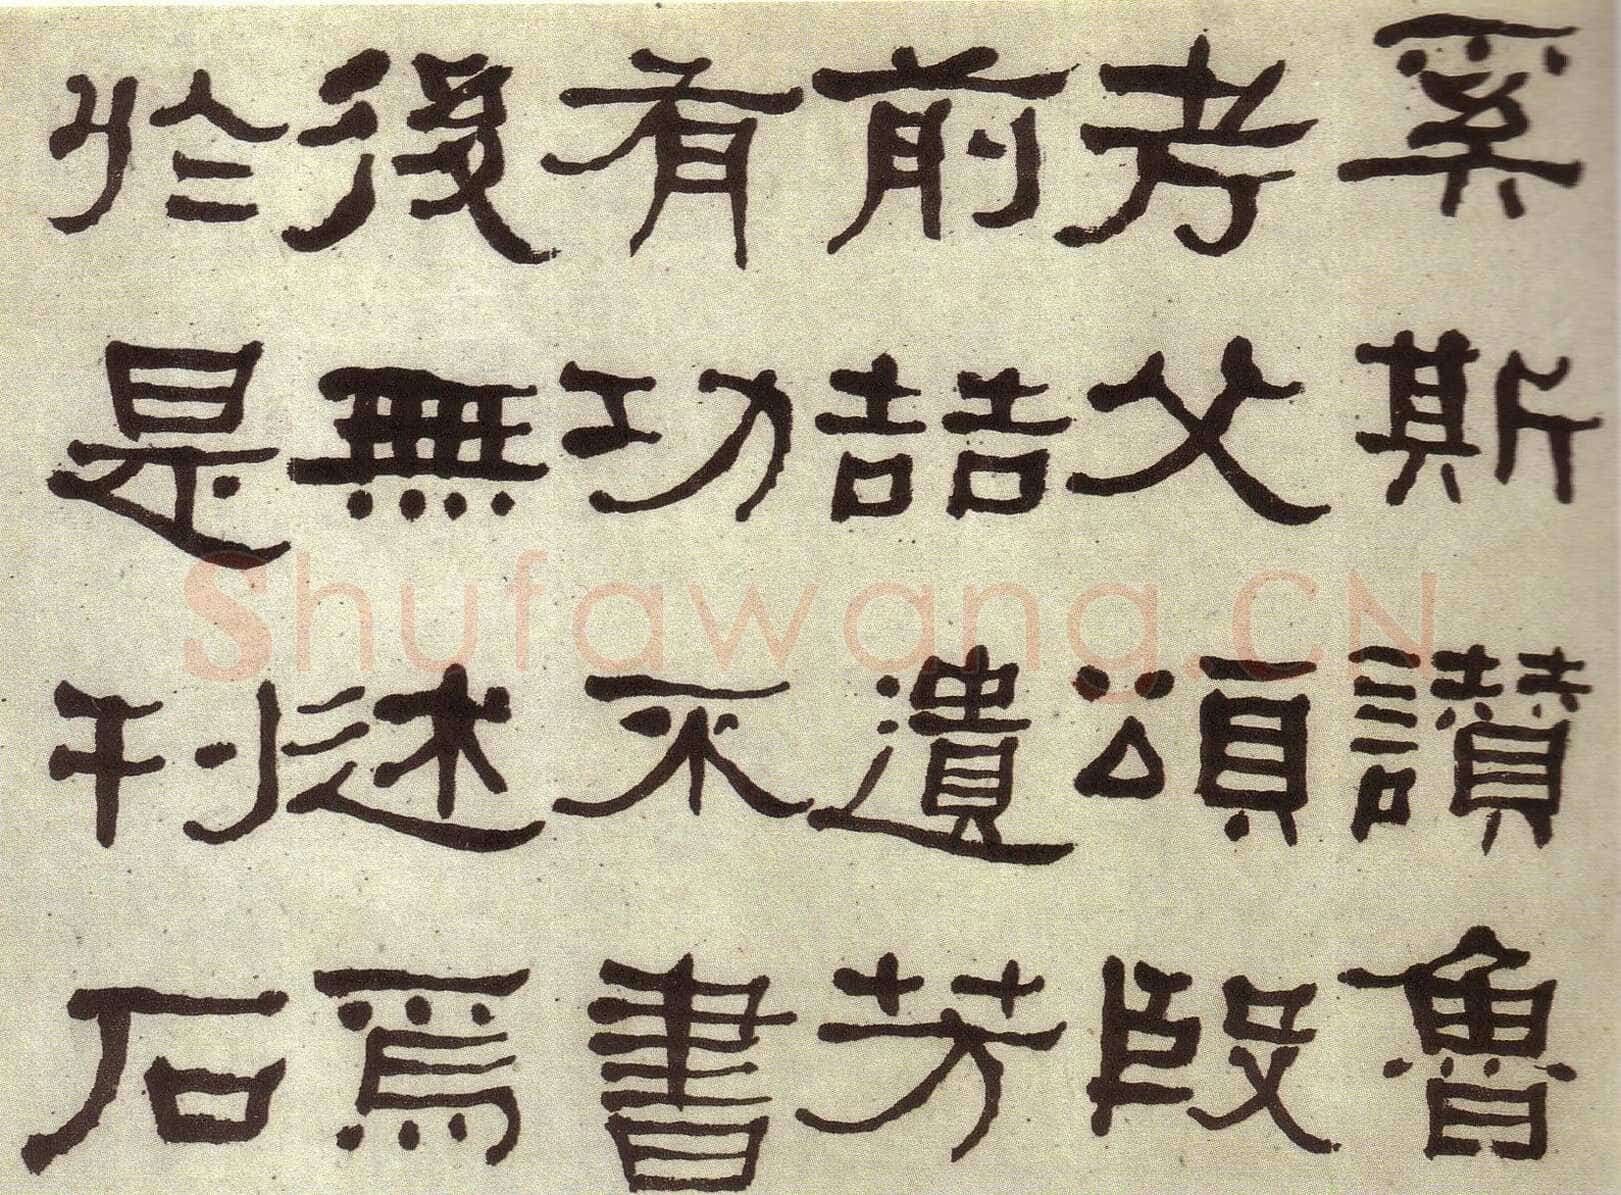 奚斯讚魯
考父頌殷
前喆遺芳
有功不書
後無述焉
於是刊石
Shufawang.CN